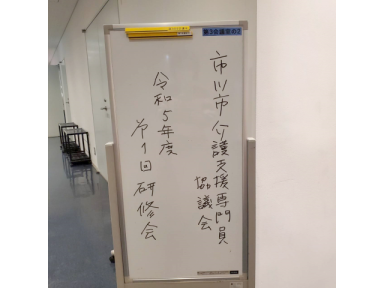 市川市介護支援専門員
協議会
令和5年度
第1回研修会